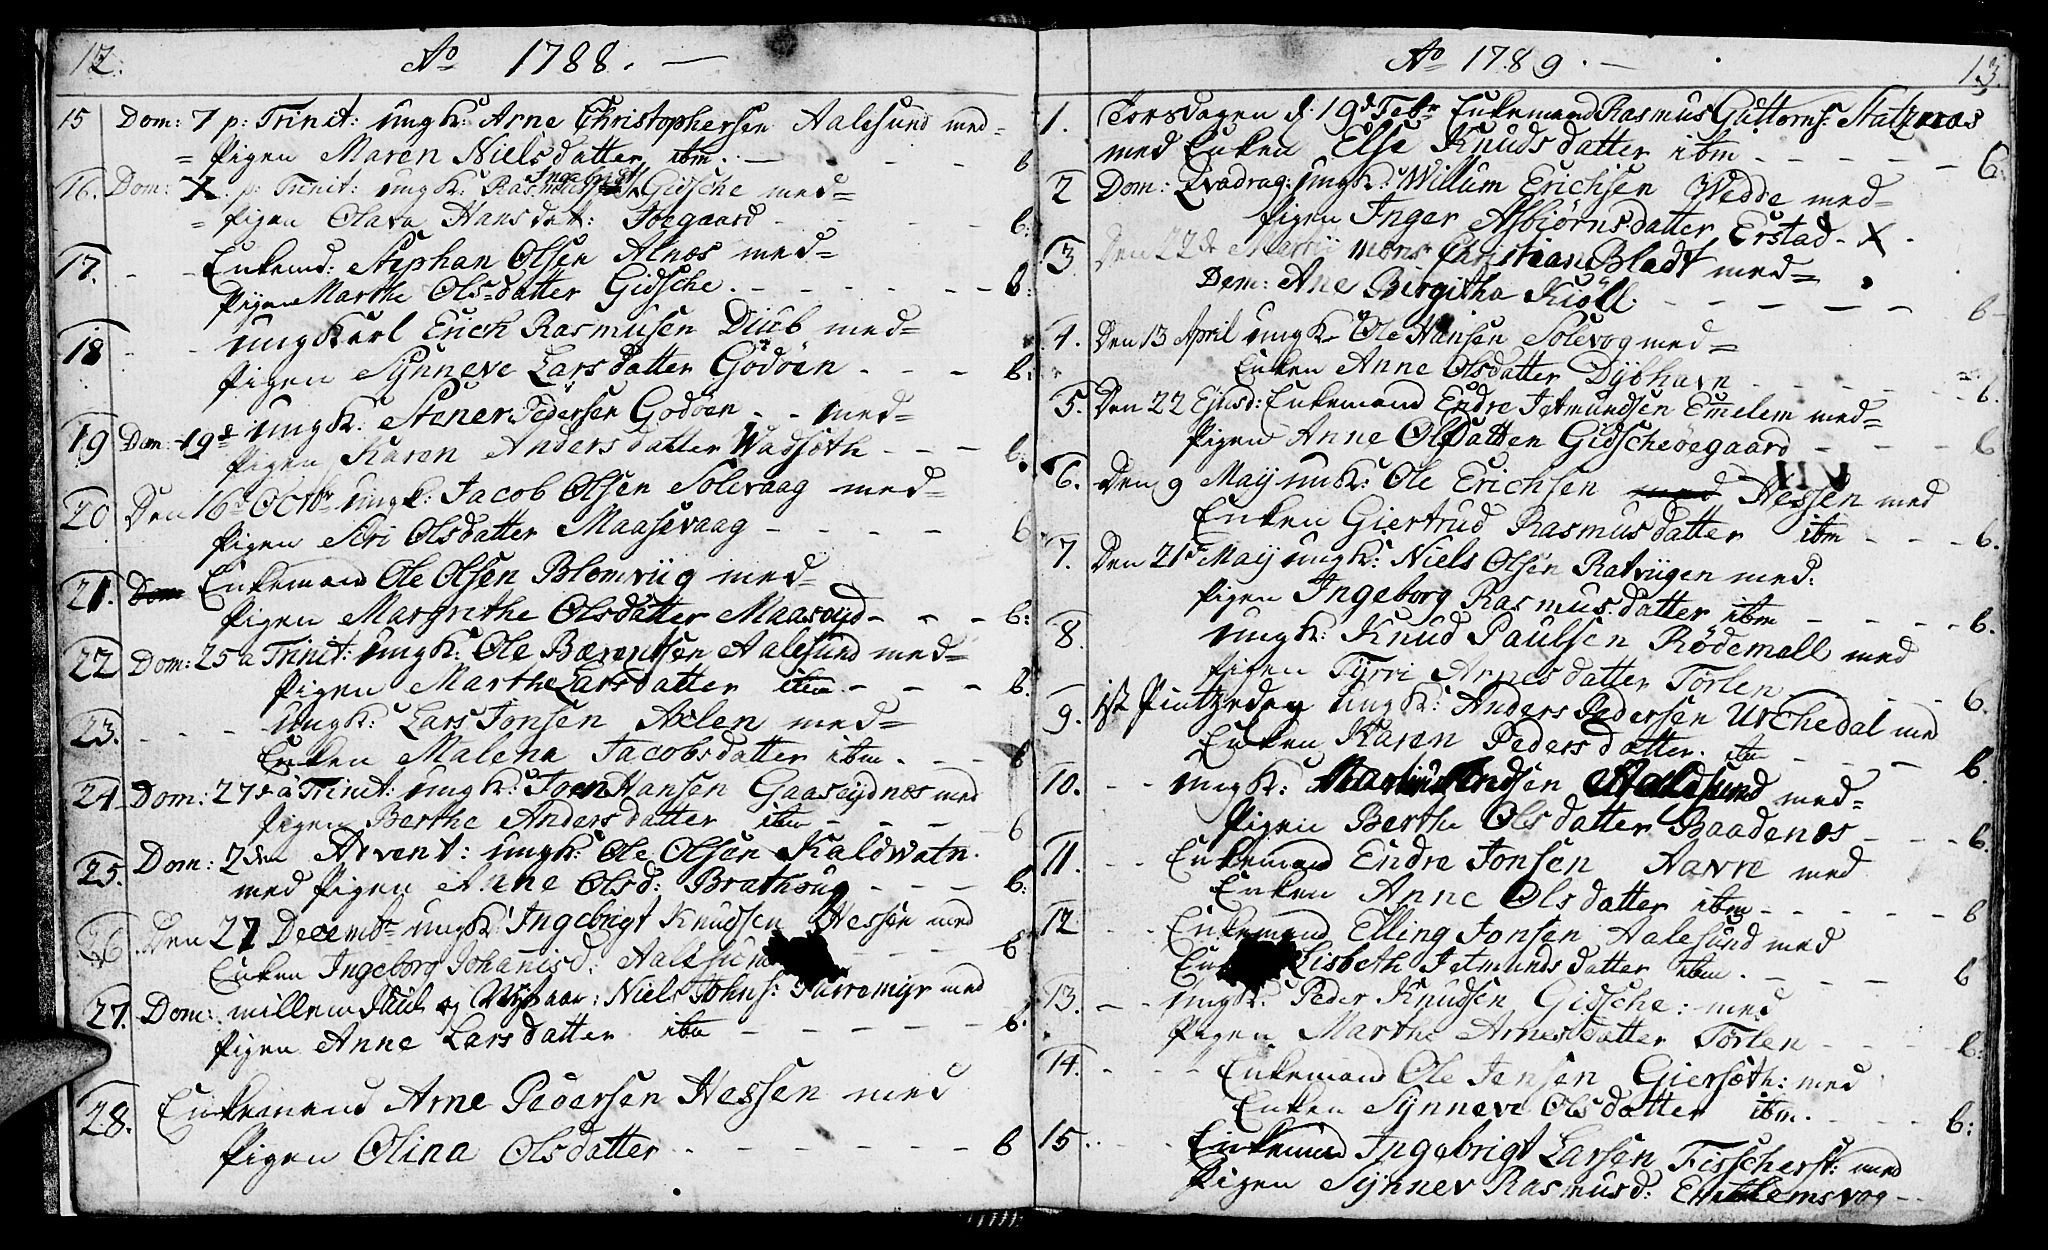 12.
Ao 1788. —
15 Dom: 7 p: Trinit: ungk: Arne Christophersen Aalesund med=
= Pigen Maren Nielsdatter ibm. — - - - b
16. Dom: X. p: Trinit: ungk: Rasmus Ingebrigts: Gidsche med=
= Pigen Olava Hansdat: Toegaard - - - b.
17. - - Enkemd: Stephan Olsen Alnos med=
Pigen Marthe Olsdatter Gidsche. - - - - - b.
18 - - ungkarl Erich Rasmusen Diub med=
Pigen Synneve Larsdatter Godöen - - - b.
19 Dom: 19de ungk: Stener Pedersen Godöen - - med=
Pigen Karen Andersdatter Wadsöth - - - b.
20 Den 16de Octbr ungk: Jacob Olsen Solevaag med=
Pigen Siri Olsdatter Maasevaag - - - - b
21. Enkemand Ole Olsen Blomviig med=
Pigen Margrethe Olsdatter Maaseyd - - - b:
22 Dom: 25 a Trinit: ungk: Ole Bærentsen Aalesund med=
Pigen Marthe Larsdatter ibm - - - b.
23. - - - ungk: Lars Jonsen Axlen med=
Enken Malena Jacobsdatter ibm. - - b
24 Dom: 27de a Trinit: ungk: Joen Hansen Gaaseydnes med
Pigen Berthe Andersdatter ibm - - - - b
25. Dom: 2den Advent: ungk: Ole Olsen Kaldvatn.
med Pigen Anne Olsd: Brathoug - - - b.
26 Den 27 Decembr ungk: Ingebrigt Knudsen Hessen med
Enken Ingeborg Johannesd: Aalesund - - - b
27. Dom: millem Juul og Nytaar: Niels Johns: med
Pigen Anne Larsdatter ibm - - - - - b.
28. Enkemand Arne Pedersen Hessen med
Pigen Olina Olsdatter - - - - - b
Ao 1789. —
13.
1. Torsdagen d: 19de Febr Enkemand Rasmus Guttorms: Statznæs
med Enken Else Knudsdatter ibm - - - - - 6.
2 Dom: Qvadrag: ungk: Willum Erichsen Vedde med=
Pigen Inger Asbiörnsdatter Erstad - X -
3. Den 22de Martii Mons. Christian Bladt med=
Dem: Ane Birgitha Kiöll. - - - - - b-
4. Den 13 April ungk- Ole Hansen Solevog med=
Enken Anne Olsdatter Dybhavn - - - - b.
5. Den 22 Ejusd: Enkemand Endre Jetmundsen Emelem med=
Pigen Anne Olsdatter Gidscheöegaard - - - 6
6. Den 9 May unk: Ole Erichsen med Hessen med
Enken Giertrud Rasmusdatter ibm - - - b.
7. Den 21de May ungk: Niels Olsen Ratviigen med:
Pigen Ingeborg Rasmusdatter ibm - - - - b.
8. ungk: Knud Paulsen Rödemoll med
Pigen Tyrri Arnesdatter Törlen - - - - 6.
9. 1ste Pintzedag ungk: Anders Pedersen Urchedal med
Enken Karen Pedersdatter. ibm - - - b.
10. - - ungk: Aalesund med=
Pigen Berthe Olsdatter Baadenos - - - b.
11. - - Enkemand Endre Jonsen Havre med
Enken Anne Olsdatter ibm - - - - - b
12 - - Enkemand Elling Jonsen Aalesund med
Lisbeth Jetmundsdatter ibm. - - - - b
13. - - ungk: Peder Knudsen Gidsche: med
Pigen Marthe Arnesdatter Törlen - - - - b:
14. - - - Enkemand Ole Jensen Giersöth: med
Enken Synneve Olsdatter ibm. - - - - b:
15. - - - Enkemand Ingebrigt Larsen Fisscherst: med
Pigen Synnev Rasmusd: Emblemsvog --